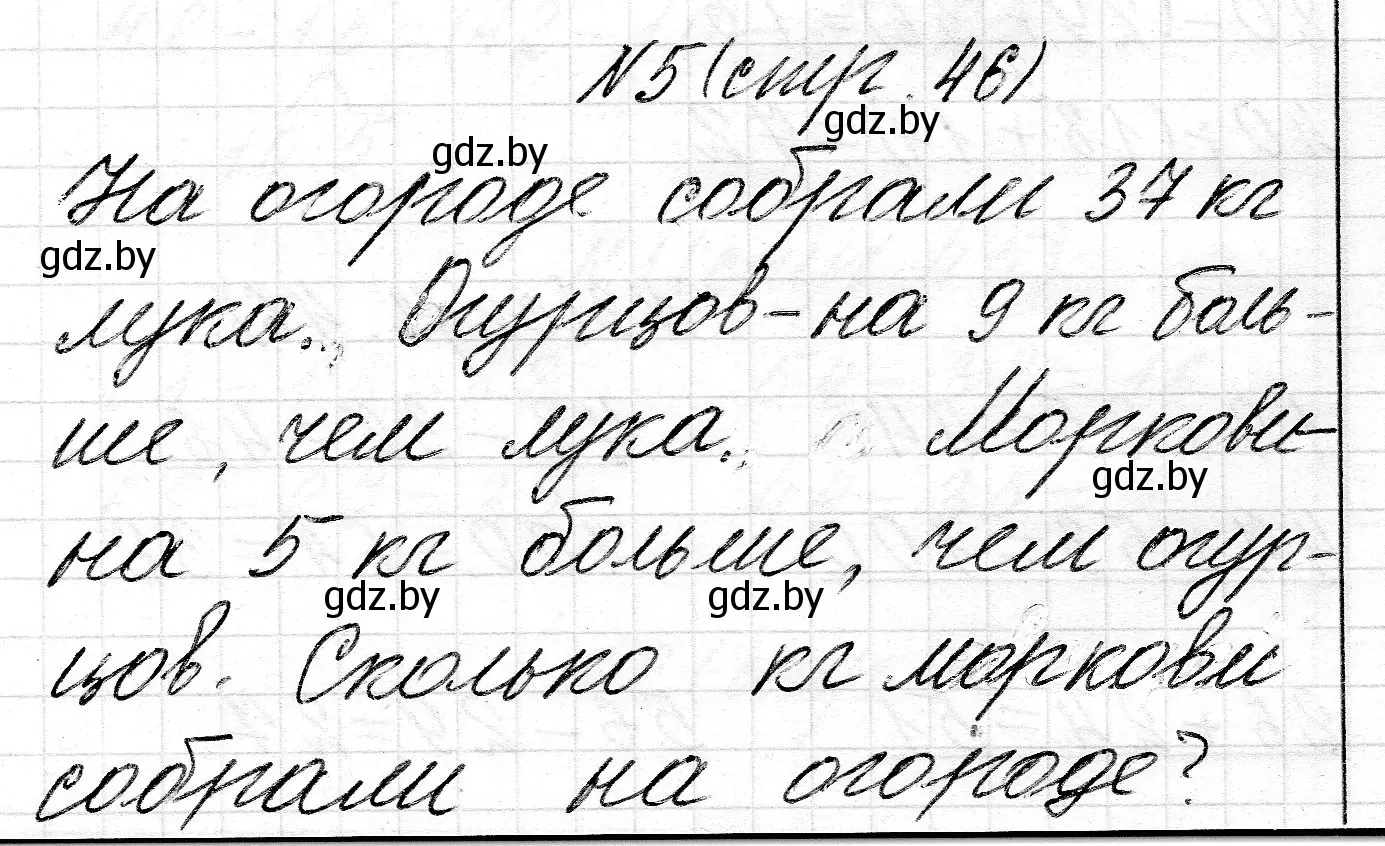 №5 (стр. 46)
gdz.by
gdz.by
На огороде собрали 37 кг
gdz.by
лука. Огурцов - на 9 кг боль-
ше, чем лука. Моркови -
gdz.by
на 5 кг больше, чем огур-
gdz.by gdz.by
цов. Сколько кг моркови
собрали на огороде?